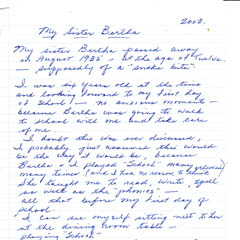 2003.
My Sister Bertha
My sister Bertha passed away
in August 1935 - at the age of Twelve.
supposedly of a "snake bite".
I was six years old at the time
and looking forward to my first day
of School! - no anxious moments -
because Bertha was going to walk
to School with me and take care
of me.
I doubt this was ever discussed,
I probably just assumed this would
be the way it would be, because
Bertha had played "School"
many times (and I had no reason to
She taught me to read, write, spell
as well as "phonics" -
all that before my first day of
school.
I can see myself sitting next to her
at the dining room table -
playing "School"